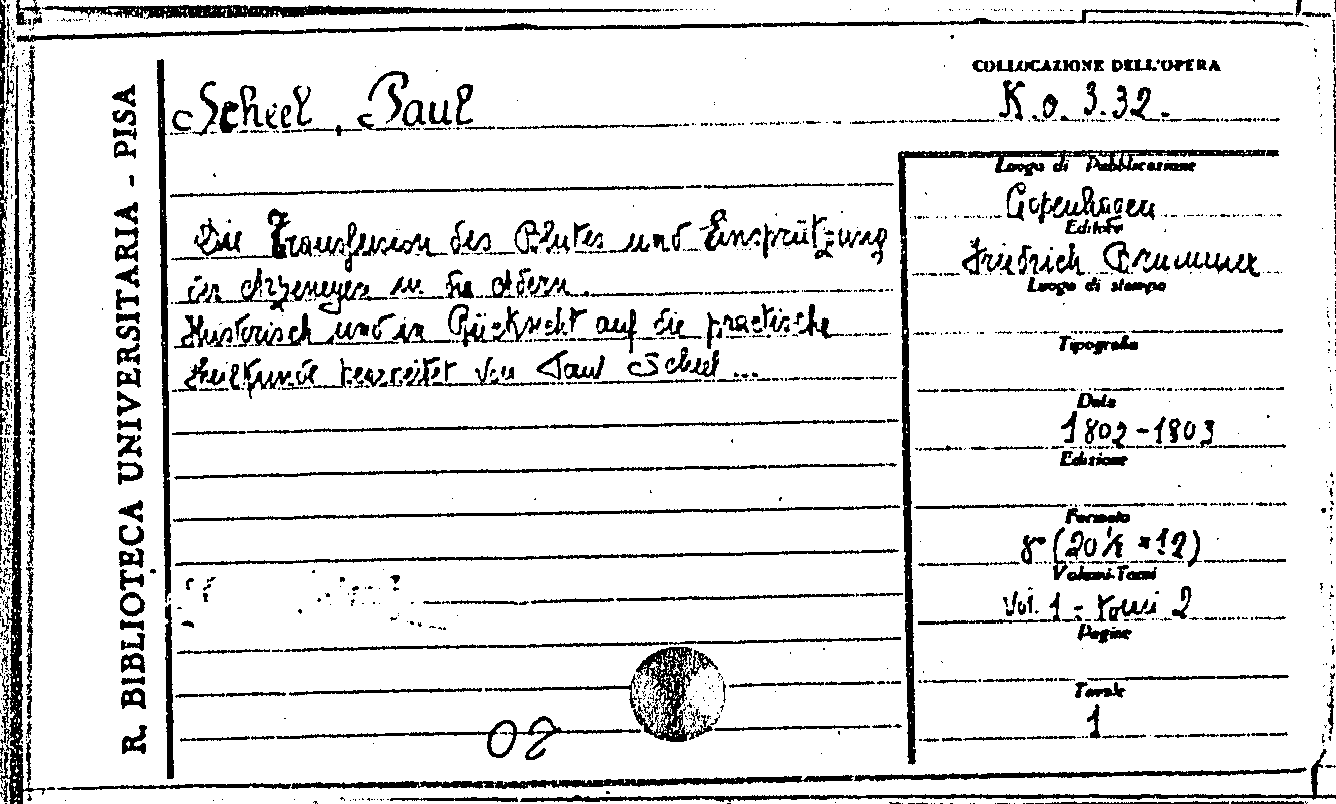 R. BIBLIOTECA UNIVERSITARIA - PISA
Scheel, Paul
COLLOCAZIONE DELL'OPERA
K.o. 3.32.
Die Transfusion des Blutes und Einsprützung
der Arzeneyen in die Adern.
Historisch und in Rücksicht auf die practische
Heilkunde bearbeitet von Paul Scheel...
Luogo di Pubblicazione
Copenhagen
Editore
Friedrich Brummer
Luogo di stampa
Tipografia
Data
1802-1803
Edizione
Formato
8° (20½ × 12)
Volumi-Tomi
Vol. 1 - tomi 2
Pagine
Tavole
1
02